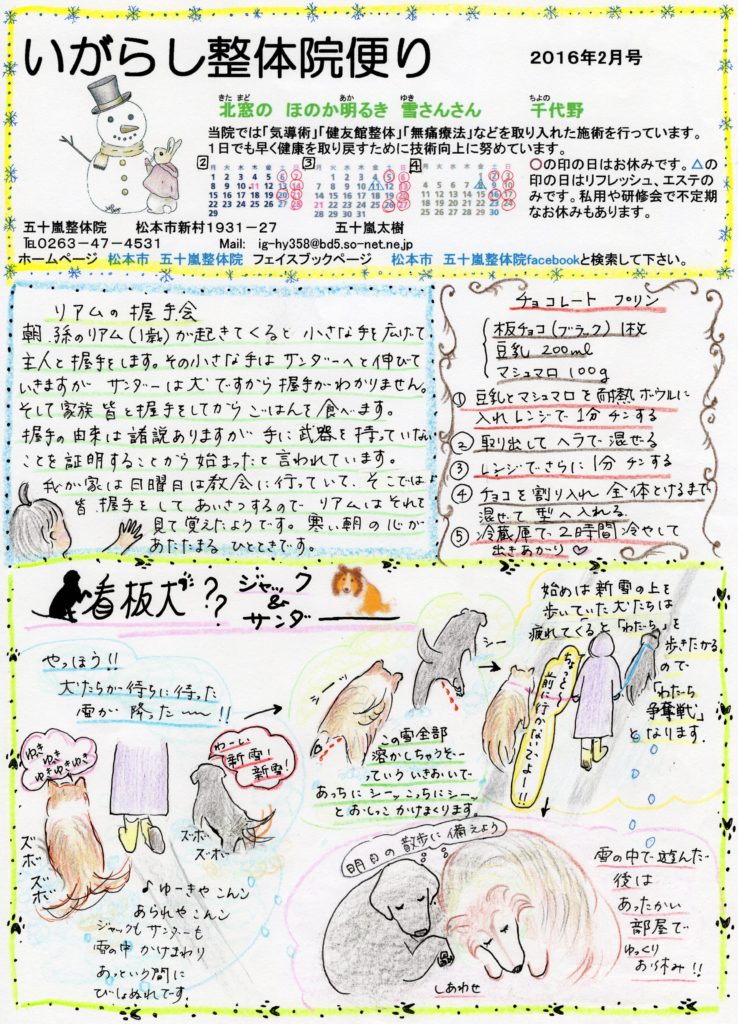 いがらし整体院便り
2016年2月号
きた まど あか ゆき ちよの
北窓の ほのか明るき 雪さんさん 千代野
当院では「気導術」「健友館整体」「無痛療法」などを取り入れた施術を行っています。
1日でも早く健康を取り戻すために技術向上に努めています。
2 3 4
月 火 水 木 金 土 日
○の印の日はお休みです。△の
印の日はリフレッシュ、エステのみです。私用や研修会で不定期
なお休みもあります。
五十嵐整体院 松本市新村1931-27 五十嵐太樹
℡0263-47-4531 Mail: ig-hy358@bd5.so-net.ne.jp
ホームページ 松本市 五十嵐整体院 フェイスブックページ 松本市 五十嵐整体院facebookと検索して下さい。
リアムの握手会
朝、孫のリアム(1歳)が起きてくると 小さな手を広げて
主人と握手をします。その小さな手は サンダーへと伸びて
いきますが サンダーは犬ですから握手がわかりません。
そして家族 皆と握手をしてから ごはんを食べます。
握手の由来は諸説ありますが 手に武器を持っていない
ことを証明することから始まったと言われています。
我が家は日曜日は教会に行っていて、そこでは
皆 握手をして あいさつするので リアムはそれを
見て覚えたようです。寒い朝の心が
あたたまる ひとときです。
チョコレート プリン
板チョコ(ブラック) 1枚
豆乳 200ml
マシュマロ 100g
① 豆乳とマシュマロを耐熱ボウルに
入れレンジで1分チンする
② 取り出して ヘラで混ぜる
③ レンジでさらに1分 チンする
④ チョコを割り入れ 全体とけるまで
混ぜて 型へ入れる
⑤ 冷蔵庫で 2時間 冷やして
出きあがり♡
看板犬?? ジャック
&
サンダー
やっほう!!
犬たちが待ちに待った
雪が 降ったーー!!
ゆき
ゆき
ゆきゆき
わーい
新雪!
新雪!
ズボ
ズボ
ズボ
ズボ
♪ゆーきや こんこん
あられや こんこん
ジャックも サンダーも
雪の中 かけまわり
あっという間に
びしょぬれです。
シーッ
シー
この雪全部
溶かしちゃうぞー
っていう いきおいで
あっちにシーッ こっちにシーッ
と おしっこ かけまくります。
始めは新雪の上を
歩いていた犬たちは
疲れてくると「わだち」を
歩きたがる
ので
「わだち
争奪戦」
となります。
ちょっと
前に行かないでよー!!
明日の散歩に備えよう
しあわせ
雪の中で遊んだ
後は
あったかい
部屋で
ゆっくり
お休み!!